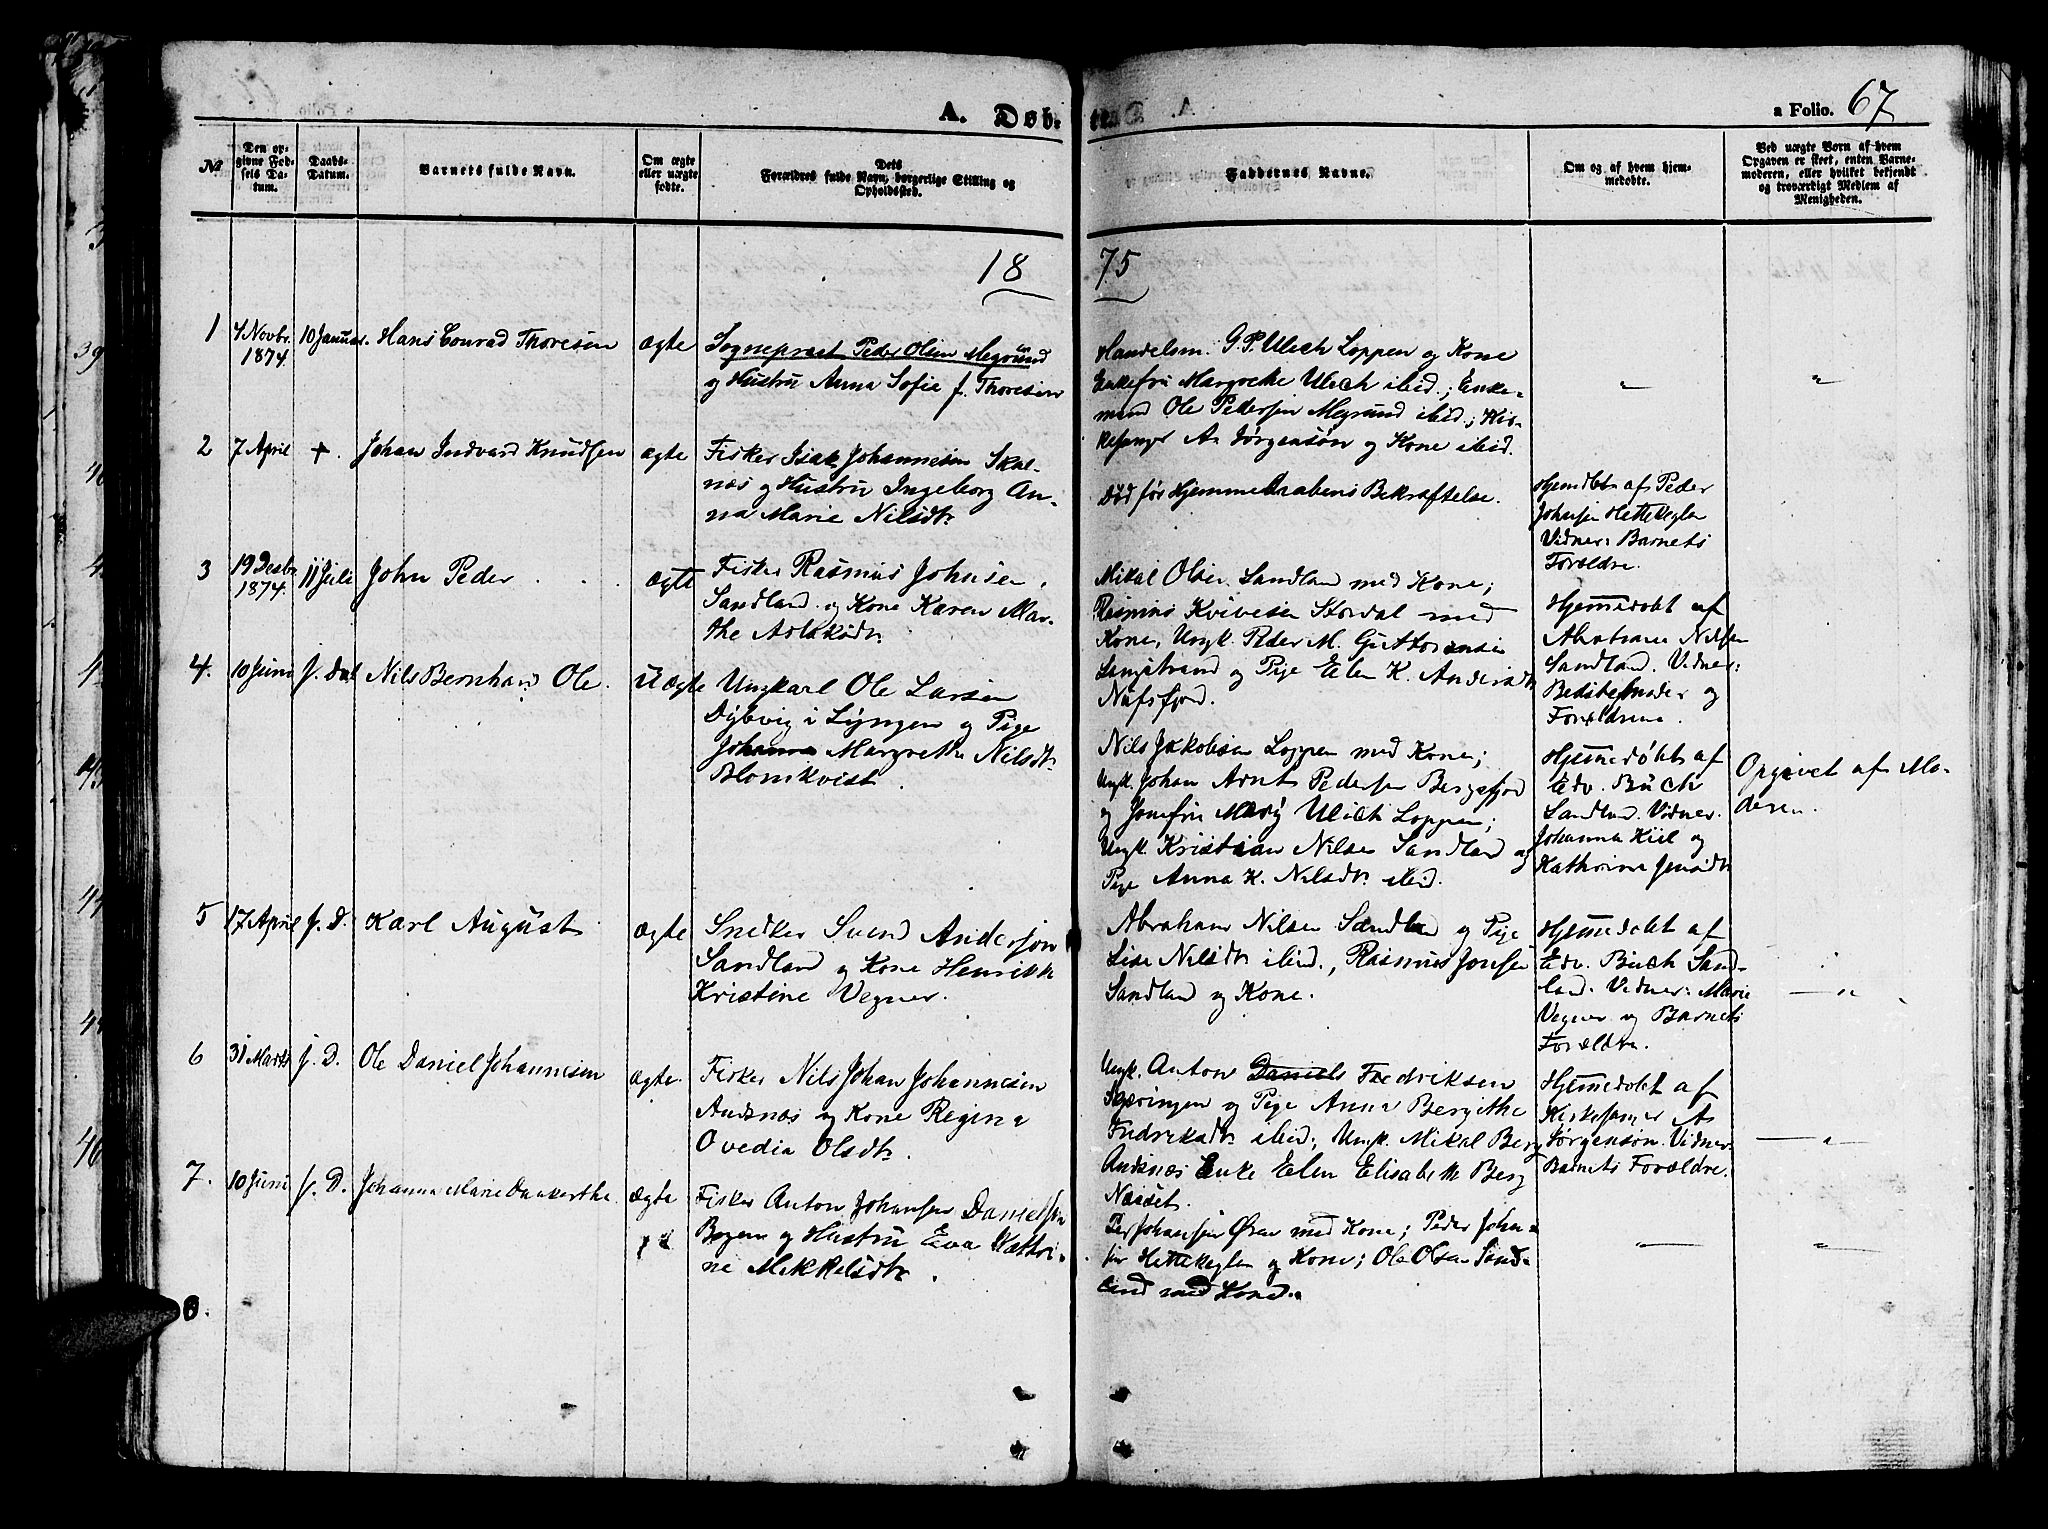 A. Døbte.
a Folio. 67
№
Den opgivne Fødsels Datum.
Daabs-Datum.
Barnets fulde Navn.
Om ægte eller uægte fødte.
Dets Forældres fulde Navn, borgerlige Stilling og Opholdssted.
Faddernes Navne.
Om og af hvem hjemmedøbte.
Ved uægte Børn af hvem Opgaven er skeet, enten Barnemoderen, eller hvilket bekjendt og troværdigt Medlem af Menigheden.
1875
1
4 Novbr. 1874
10 Januar.
Hans Conrad Thoresen
ægte
Sognepræst Peder Olsen Megrund
og Hustru Anna Sofie f. Thoresen
Handelsm. G. P. Ulich Loppen og Kone
Enkefru Margrethe Ulich ibid.; Enke-
mand Ole Pedersen Megrund ibid; Kir-
kesanger As Jørgensøn og Kone ibid.
"
"
2
7 April
+.
Johan Indvard Knudsen
ægte
Fisker Isak Johannesen Skal-
næs og Hustru Ingeborg An-
na Marie Nilsdtr.
Død før Hjemmedaabens Bekræftelse.
Hjemdbt af Peder
Johnsen Hettekeglen
Vidner: Barnets
Forældre.
3
19 Decbr. 1874
11 Juli
John Peder
ægte
Fisker Rasmus Johnsen
Sandland og Kone Karen Mar-
the Aslaksdtr.
Mikal Olsen Sandland med Kone;
Rasmus Kvivesen Stordal med
Kone, Ungk. Peder M. Guttormsen
Langstrand og Pige Elen K. Andersdtr
Nufsfjord.
Hjemmedøbt af
Abraham Nilsen
Sandland. Vidner:
Bedstemoder og
Forældrene.
4.
10 Juni
s. Dat
Nils Bernhard Ole.
Uægte
Ungkarl Ole Larsen
Dybvig i Lyngen og Pige
Johanna Margrethe Nilsdtr.
Blomkvist.
Nils Jakobsen Loppen med Kone;
Ungk. Johan Arnt Pedersen Bergsfjord
og Jomfru Mary Ulich Loppen;
Ungk. Kristian Nilsen Sandland og
Pige Anna K. Nilsdtr. ibid.
Hjemmedøbt af
Edv. Buck
Sandland. Vidner.
Johanna Kiil og
Kathrina Jensdtr.
Opgivet af Mo-
deren.
5
17 April
s. D.
Karl August
ægte
Snedker Svend Andersson
Sandland og Kone Henrikke
Kristine Vegner.
Abraham Nilsen Sandland og Pige
Lise Nilsdtr. ibid., Rasmus Jonsen
Sandland og Kone.
Hjemmedøbt af
Edv. Buck Sand-
land. Vidner: Marie
Vegner og Barnets
Forældre.
— " —
6
31 Marts
s. D.
Ole Daniel Johannesen
ægte.
Fisker Nils Johan Johannesen
Andsnæs og Kone Regina
Ovedia Olsdtr.
Ungk. Anton Daniels Fredriksen
Skjæringen og Pige Anna Bergithe
Fredriksdtr. ibid; Ungk. Mikal Berg
Andsnæs Enke Elen Elisabeth Berg
Næsset.
Hjemmedøbt af
Kirkesanger As
Jørgensøn. Vidner
Barnets Forældre.
— " —
7.
10 Juni
s. D.
Johanna Marie Dankerthe
ægte
Fisker Anton Johansen Danielsen
Bogen og Hustru Eva Kathri-
ne Mikkelsdtr.
Per Johansen Øren med Kone; Peder John-
sen Hettekeglen og Kone; Ole Olsen Sand-
land med Kone.
— " —
— " —
8.